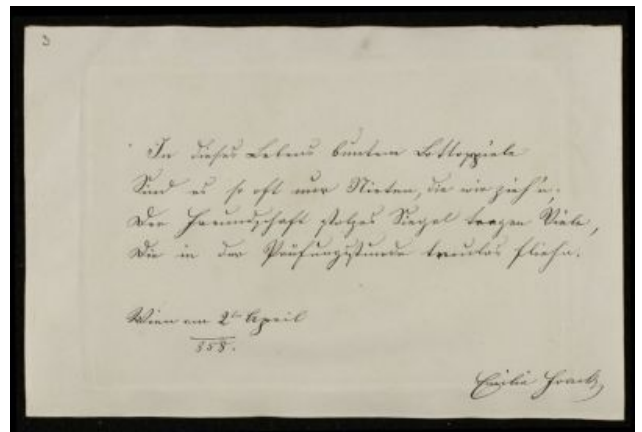 3
In dieses Lebens buntem Lottospiele
Sind es so oft nur Nieten, die wir zieh'n;
Der Freundschaft stolzes Siegel tragen Viele,
Die in der Prüfungsstunde treulos fliehn.
Wien am 2ten April
858.
Emilie